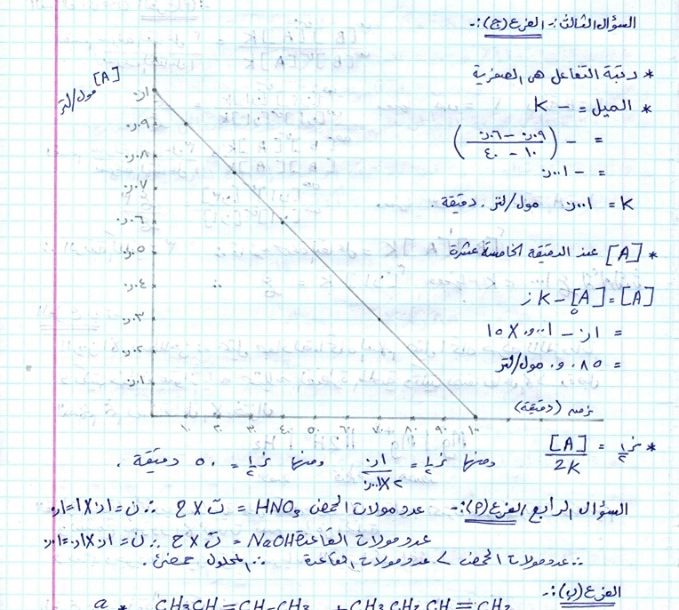 السؤال الثالث :- الفرع (ج) :-
* رتبة التفاعل هي الصفرية
* الميل = - K
= - (٠,٠٩ - ٠,٠٦ / ١٠ - ٤٠)
= - ٠,٠٠١
K = ٠,٠٠١ مول/لتر . دقيقة .
* [A] عند الدقيقة الخامسة عشرة
[A] = [A]٠ - K ز
= ٠,١ - ٠,٠٠١ X ١٥
= ٠,٠٨٥ مول/لتر
[A] مول/لتر
٠,١
٠,٠٩
٠,٠٨
٠,٠٧
٠,٠٦
٠,٠٥
٠,٠٤
٠,٠٣
٠,٠٢
٠,٠١
١٠ ٢٠ ٣٠ ٤٠ ٥٠ ٦٠ ٧٠ ٨٠ ٩٠ ١٠٠
زمن (دقيقة)
* ز½ = [A] / 2K ومنها ز½ = ٠,١ / ٢X٠,٠٠١ ومنها ز½ = ٥٠ دقيقة .
السؤال الرابع الفرع (أ) :- عدد مولات الحمض HNO3 = ت X ح ∴ ن = ٠,١ X ١ = ٠,١
عدد مولات القاعدة NaOH = ت X ح ∴ ن =
∴ عدد مولات الحمض > عدد مولات القاعدة ∴ المحلول حمضي .
الفرع (ب) :-
a * CH3CH=CH-CH3 + CH3CH2CH=CH2